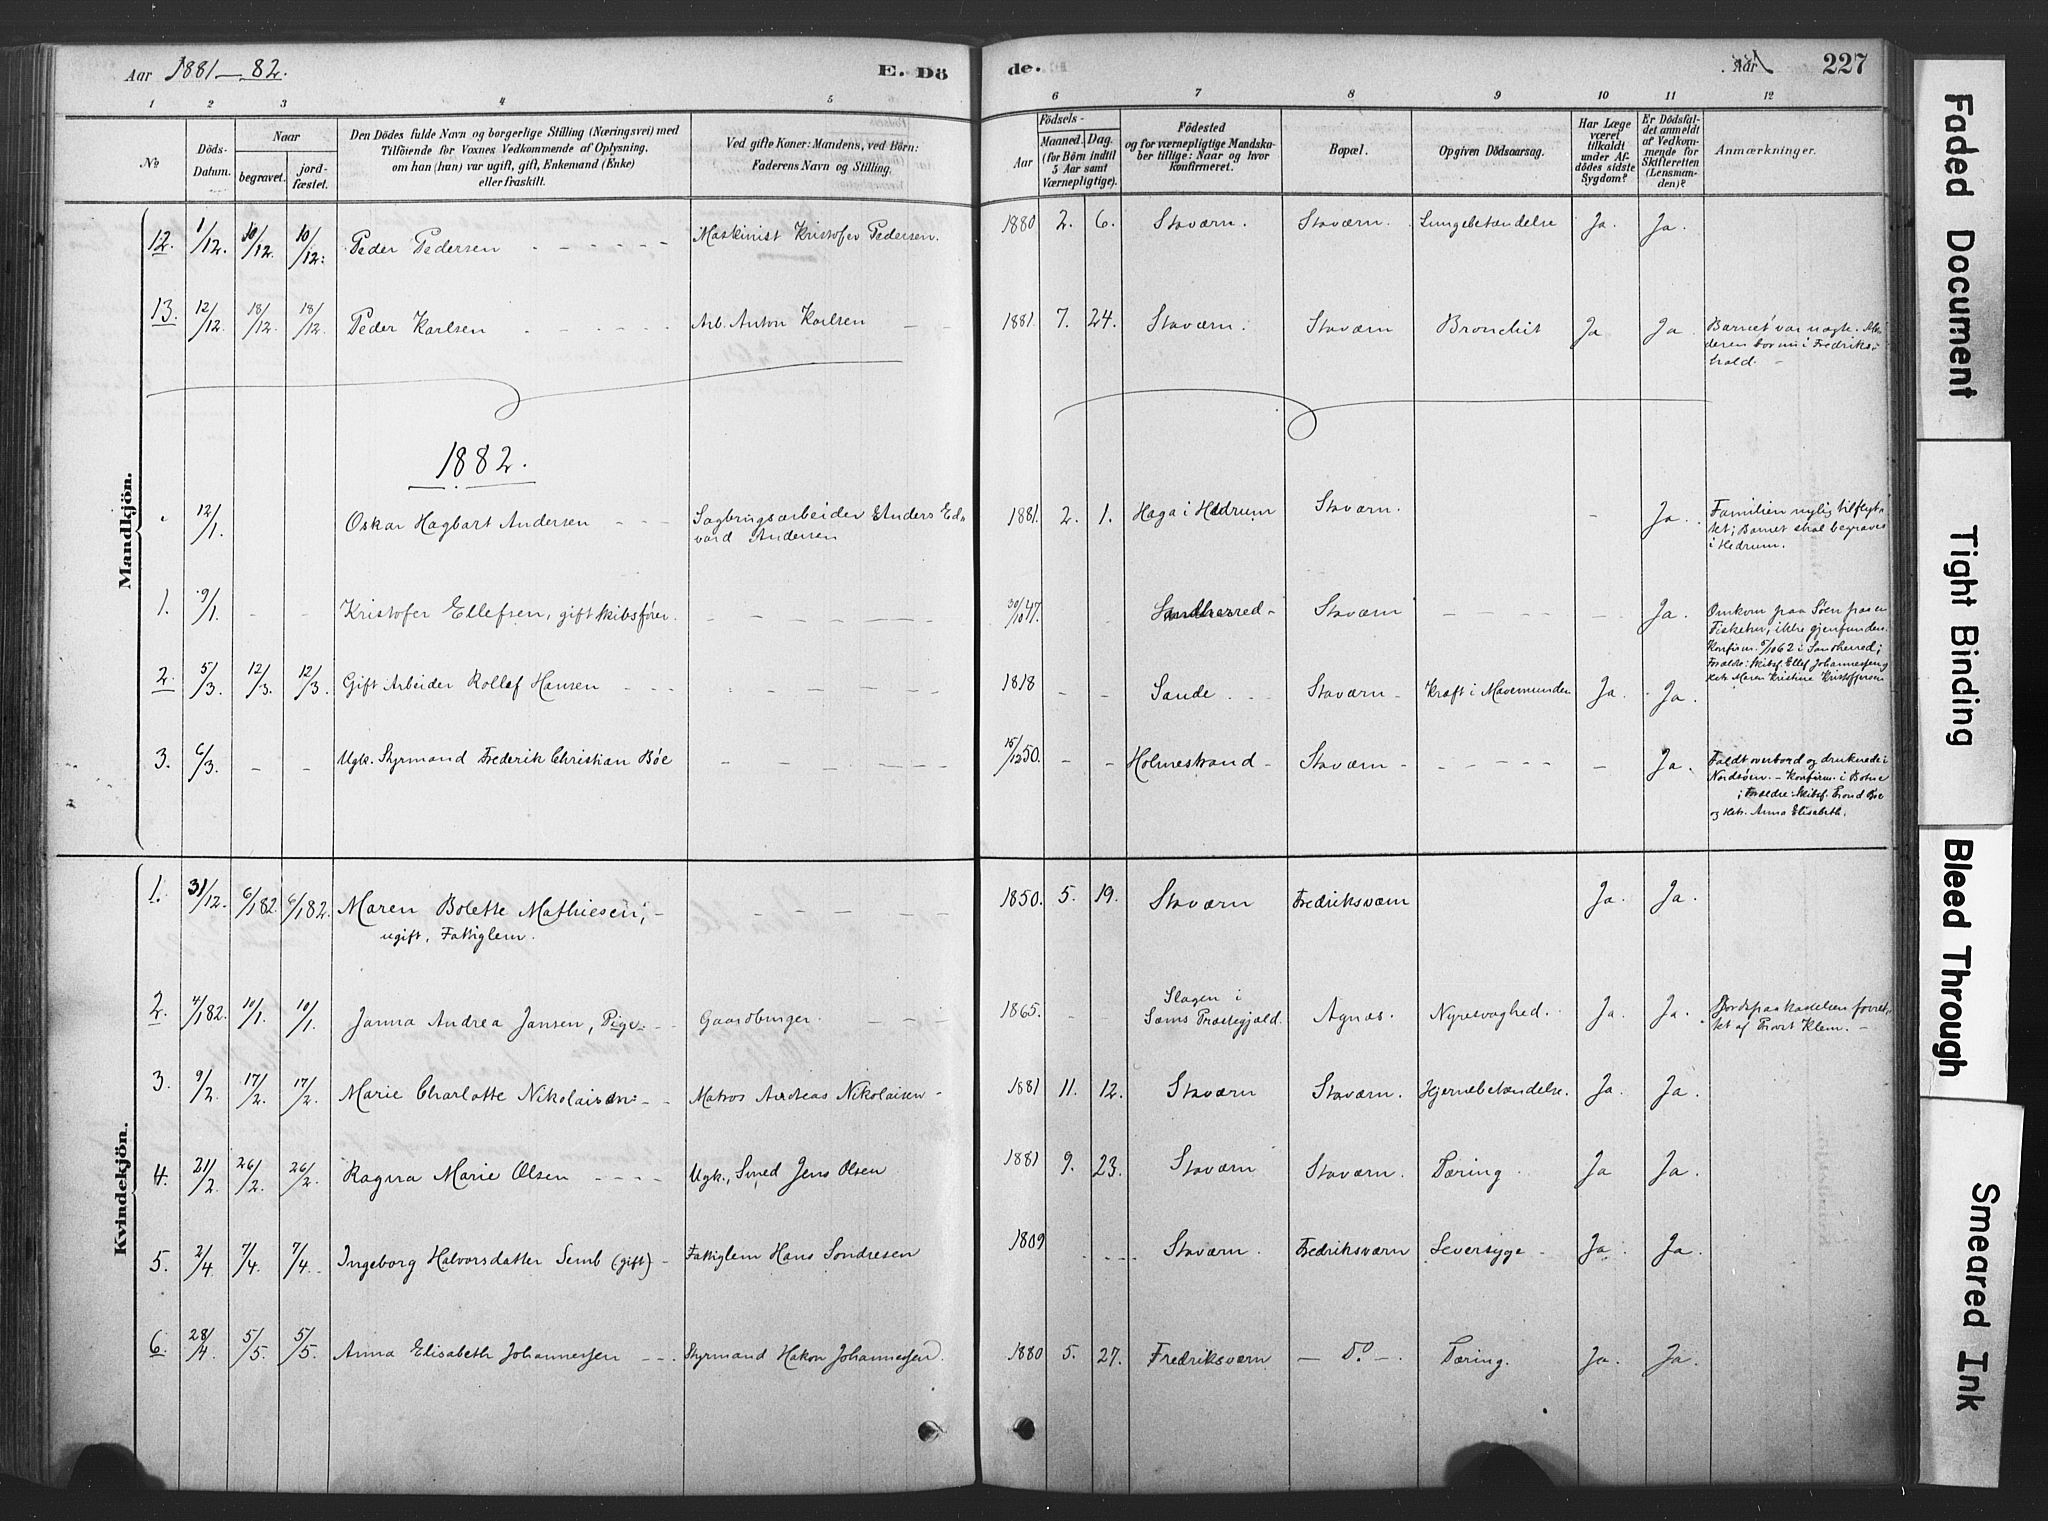 Aar 1881—82.
E. Dö
de.
Aar
227
1 2 3 4 5 6 7 8 9 10 11 12
No
Döds-
Datum.
Naar
begravet.
jord-
fæstet.
Den Dödes fulde Navn og borgerlige Stilling (Næringsvei) med
Tilföiende for Voxnes Vedkommende af Oplysning,
om han (hun) var ugift, gift, Enkemand (Enke)
eller fraskilt.
Ved gifte Koner: Mandens, ved Börn:
Faderens Navn og Stilling.
Födsels-
Aar
Maaned. Dag.
(for Börn indtil
5 Aar samt
Værnepligtige).
Födested
og for værnepligtige Mandska-
ber tillige: Naar og hvor
konfirmeret.
Bopæl.
Opgiven Dödsaarsag.
Har Læge
været
tilkaldt
under Af-
dödes sidste
Sygdom?
Er Dödsfal-
det anmeldt
af Vedkom-
mende for
Skifteretten
(Lensman-
den)?
Anmærkninger.
Mandkjön.
12. 1/12. 10/12. 10/12. Peder Pedersen Maskinist Kristofer Pedersen. 1880 2. 6. Staværn. Staværn. Lungebetændelse Ja. Ja.
13. 12/12. 18/12. 18/12. Peder Karlsen Arb. Anton Karlsen 1881. 7. 24. Staværn. Staværn Bronchit Ja Ja Barnet var uægte.
deren bor nu i Fredriks-
hald.
1882.
12/1. Oskar Hagbart Andersen Sagbrugsarbeider Anders Ed-
vard Andersen 1881. 2. 1. Haga i Hedrum Staværn. - Ja. Familien nylig tilflyt-
tet; Barnet skal begraves
i Hedrum.
1. 9/1. - - Kristofer Ellefsen, gift Skibsfører. 30/10 47. Sandherred Staværn Ja. Omkom paa Søen paa en
Fisketur, ikke gjenfunden.
Konfirm. 5/10 62 i Sandherred;
Forældre: Skibsf. Ellef Johannessen og
Hstr. Maren Kristine Kristoffersen
2. 5/3. 12/3. 12/3. Gift Arbeider Rollef Hansen 1818 - - Sande Staværn Kræft i Mavemunden Ja. Ja.
3. 6/3. - - Ugk. Styrmand Frederik Christian Bøe 15/12 50. - - Holmestrand Staværn - Ja. Faldt overbord og druknede i
Nordsøen. - Konfirm. i Botne
; Forældre: Skibsf. Trond Bøe
og Hstr. Anna Elisabeth.
Kvindekjön.
1. 31/12. 6/1 82. 6/1 82. Maren Bolette Mathiesen,
ugift, Fattiglem. 1850. 5. 19. Staværn Fredriksværn Ja. Ja.
2. 4/1 82. 10/1. 10/1. Janna Andrea Jansen, Pige. Gaardbruger. 1865. - Slagen i
Sems Præstegjæld. Agnæs. Nyresvaghed. Ja. Ja. Jordspaakastelsen forret-
tet af Provst Klem.
3. 9/2. 17/2. 17/2. Marie Charlotte Nikolaisen Matros Andreas Nikolaisen 1881 11. 12. Staværn Staværn. Hjernebetændelse. Ja Ja.
4. 21/2. 26/2. 26/2. Ragna Marie Olsen Ugk., Smed Jens Olsen 1881 9. 23. Staværn Staværn. Tæring. Ja Ja.
5. 2/4. 7/4. 7/4. Ingeborg Halvorsdatter Semb (gift) Fattiglem Hans Sondresen 1809 Staværn. Fredriksværn Leversyge Ja. Ja.
6. 28/4. 5/5. 5/5. Anna Elisabeth Johannessen Styrmand Hakon Johannessen. 1880 5. 27. Fredriksværn — Do —. Tæring. Ja. Ja.
Faded Document
Tight Binding
Bleed Through
Smeared Ink